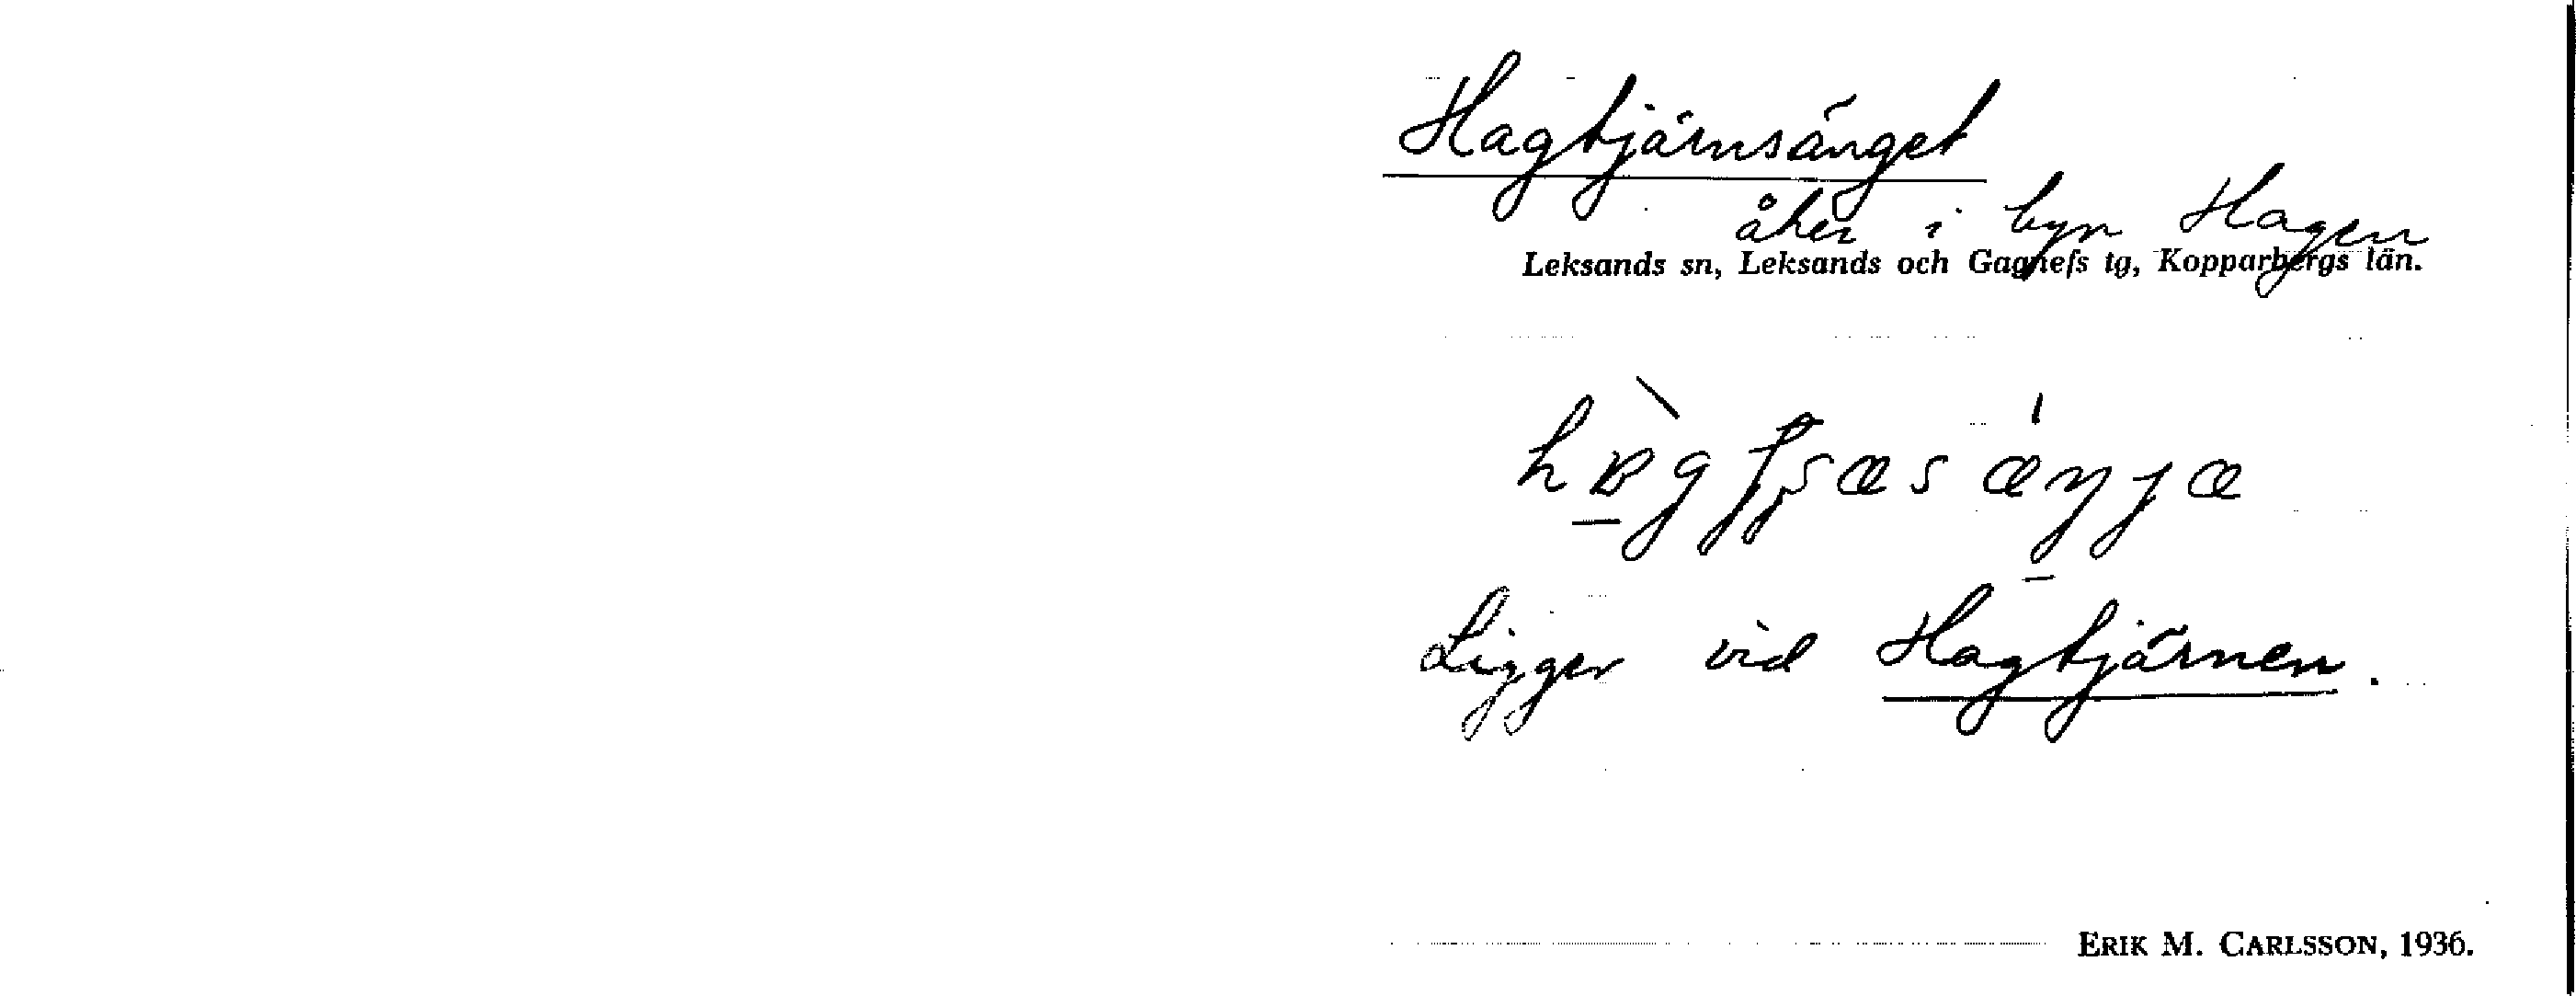 Hagtjärnsänget
åker i byn Hagen
Leksands sn, Leksands och Gagnefs tg, Kopparbergs län.
Ligger vid Hagtjärnen.
ERIK M. CARLSSON, 1936.